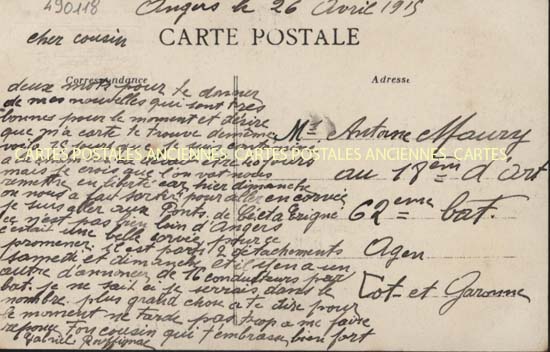 490118
Angers le 26 Avril 1915
cher cousin
CARTE POSTALE
Correspondance
Adresse
deux mots pour te donner
de mes nouvelles qui sont très
bonnes pour le moment et désire
que m'a carte te trouve de même
CARTES POSTALES ANCIENNES CARTES POSTALES ANCIENNES CARTES
mais je crois que l'on vat nous
remettre en liberté car hier dimanche
on nous a fait sortir pour aller en corvée
je suis aller aux Ponts de
ce n'est pas bien loin d'Angers
c'était une belle corvée pour se
promener. il est parti 2 détachements
samedi et dimanche et il y en a un
autre d'annoncer de 16 conducteurs par
bat. je ne sait si je serrait dans le
nombre. plus grand chose a te dire pour
le moment ne tarde pas trop a me faire
réponse ton cousin qui t'embrasse bien fort
Gabriel
Mr Antoine Maury
au 18ème d'art
62eme bat.
Agen
Lot-et-Garonne